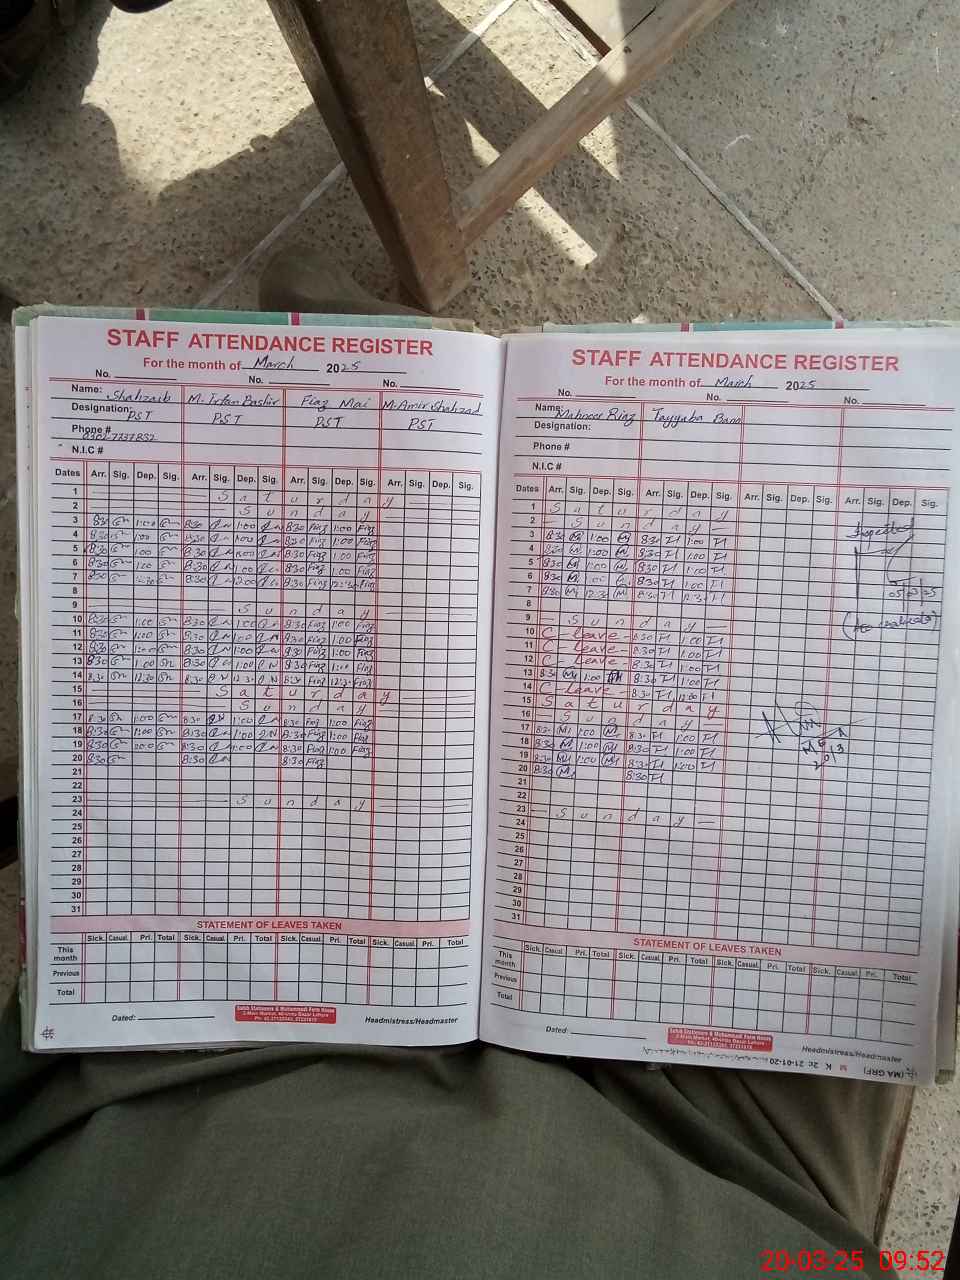 STAFF ATTENDANCE REGISTER
For the month of March 2025
No. No. No.
Name: Shahzaib M. Irfan Bashir Fiaz Mai M. Amir Shahzad
Designation: PST PST PST PST
Phone #
N.I.C #
Dates Arr. Sig. Dep. Sig. Arr. Sig. Dep. Sig. Arr. Sig. Dep. Sig. Arr. Sig. Dep. Sig.
1 Saturday
2 Sunday
3 8:30 1:00 8:30 1:00 8:30 Fiaz 1:00 Fiaz
4 8:30 1:00 8:30 1:00 8:30 Fiaz 1:00 Fiaz
5 8:30 1:00 8:30 1:00 8:30 Fiaz 1:00 Fiaz
6 8:30 1:00 8:30 1:00 8:30 Fiaz 1:00 Fiaz
7 8:30 12:30 8:30 12:00 8:30 Fiaz 12:30 Fiaz
8
9 Sunday
10 8:30 1:00 8:30 1:00 8:30 Fiaz 1:00 Fiaz
11 8:30 1:00 8:30 1:00 8:30 Fiaz 1:00 Fiaz
12 8:30 1:00 8:30 1:00 8:30 Fiaz 1:00 Fiaz
13 8:30 1:00 8:30 1:00 8:30 Fiaz 1:00 Fiaz
14 8:30 12:30 8:30 12:30 8:30 Fiaz 12:30 Fiaz
15 Saturday
16 Sunday
17 8:30 1:00 8:30 1:00 8:30 Fiaz 1:00 Fiaz
18 8:30 1:00 8:30 1:00 8:30 Fiaz 1:00 Fiaz
19 8:30 8:30 1:00 8:30 Fiaz 1:00 Fiaz
20 8:30 8:30 8:30 Fiaz
21
22
23 Sunday
24
25
26
27
28
29
30
31
STATEMENT OF LEAVES TAKEN
Sick. Casual. Pri. Total Sick. Casual. Pri. Total Sick. Casual. Pri. Total Sick. Casual. Pri. Total
This month
Previous
Total
Dated:
Sahib Stationers & Muhammadi Form House
2-Main Market, 40-Urdu Bazar Lahore
Headmistress/Headmaster
STAFF ATTENDANCE REGISTER
For the month of March 2025
No. No. No.
Name: Mahnoor Riaz Tayyaba Bano
Designation:
Phone #
N.I.C #
Dates Arr. Sig. Dep. Sig. Arr. Sig. Dep. Sig. Arr. Sig. Dep. Sig. Arr. Sig. Dep. Sig.
1 Saturday
2 Sunday
3 8:30 1:00 8:30 1:00
4 8:30 1:00 8:30 1:00
5 8:30 1:00 8:30 1:00
6 8:30 1:00 8:30 1:00
7 8:30 12:30 8:30 12:30
8
9 Sunday
10 C-Leave 8:30 1:00
11 C-Leave 8:30 1:00
12 C-Leave 8:30 1:00
13 8:30 1:00 8:30 1:00
14 C-Leave 8:30
15 Saturday
16 Sunday
17 8:30 1:00 8:30 1:00
18 8:30 1:00 8:30 1:00
19 8:30 1:00 8:30 1:00
20 8:30 8:30
21
22
23 Sunday
24
25
26
27
28
29
30
31
Inspected
05 03 25
STATEMENT OF LEAVES TAKEN
Sick. Casual. Pri. Total Sick. Casual. Pri. Total Sick. Casual. Pri. Total Sick. Casual. Pri. Total
This month
Previous
Total
Dated:
Sahib Stationers & Muhammadi Form House
2-Main Market, 40-Urdu Bazar Lahore
Headmistress/Headmaster
(MA GRF) M K 2c 21-01-20
20-03-25 09:52